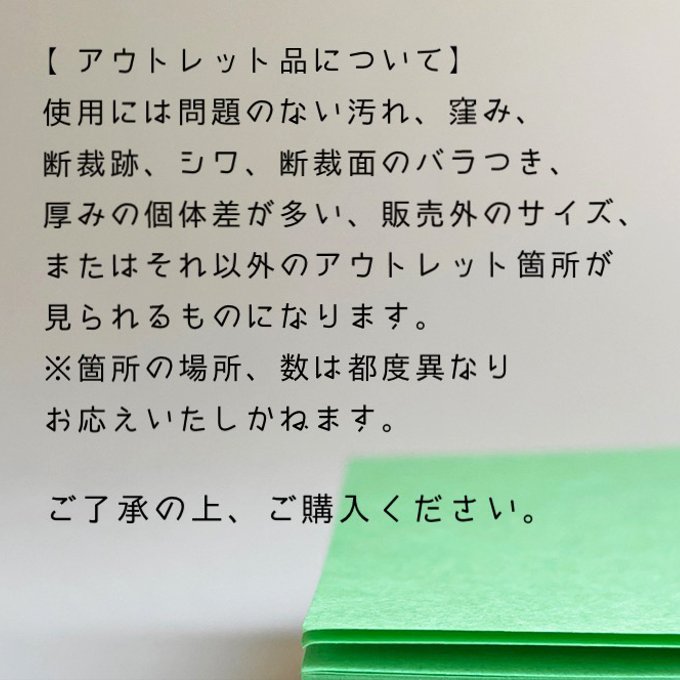 【 アウトレット品について】
使用には問題のない汚れ、窪み、
断裁跡、シワ、断裁面のバラつき、
厚みの個体差が多い、販売外のサイズ、
またはそれ以外のアウトレット箇所が
見られるものになります。
※箇所の場所、数は都度異なり
お応えいたしかねます。
ご了承の上、ご購入ください。